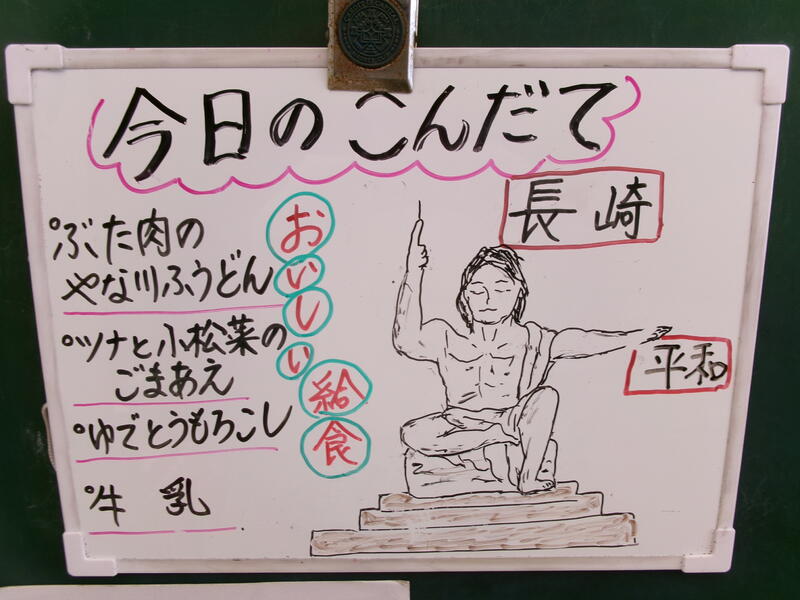 今日のこんだて
ぶた肉の
やな川ふうどん
ツナと小松菜の
ごまあえ
ゆでとうもろこし
牛乳
おいしい給食
長崎
平和